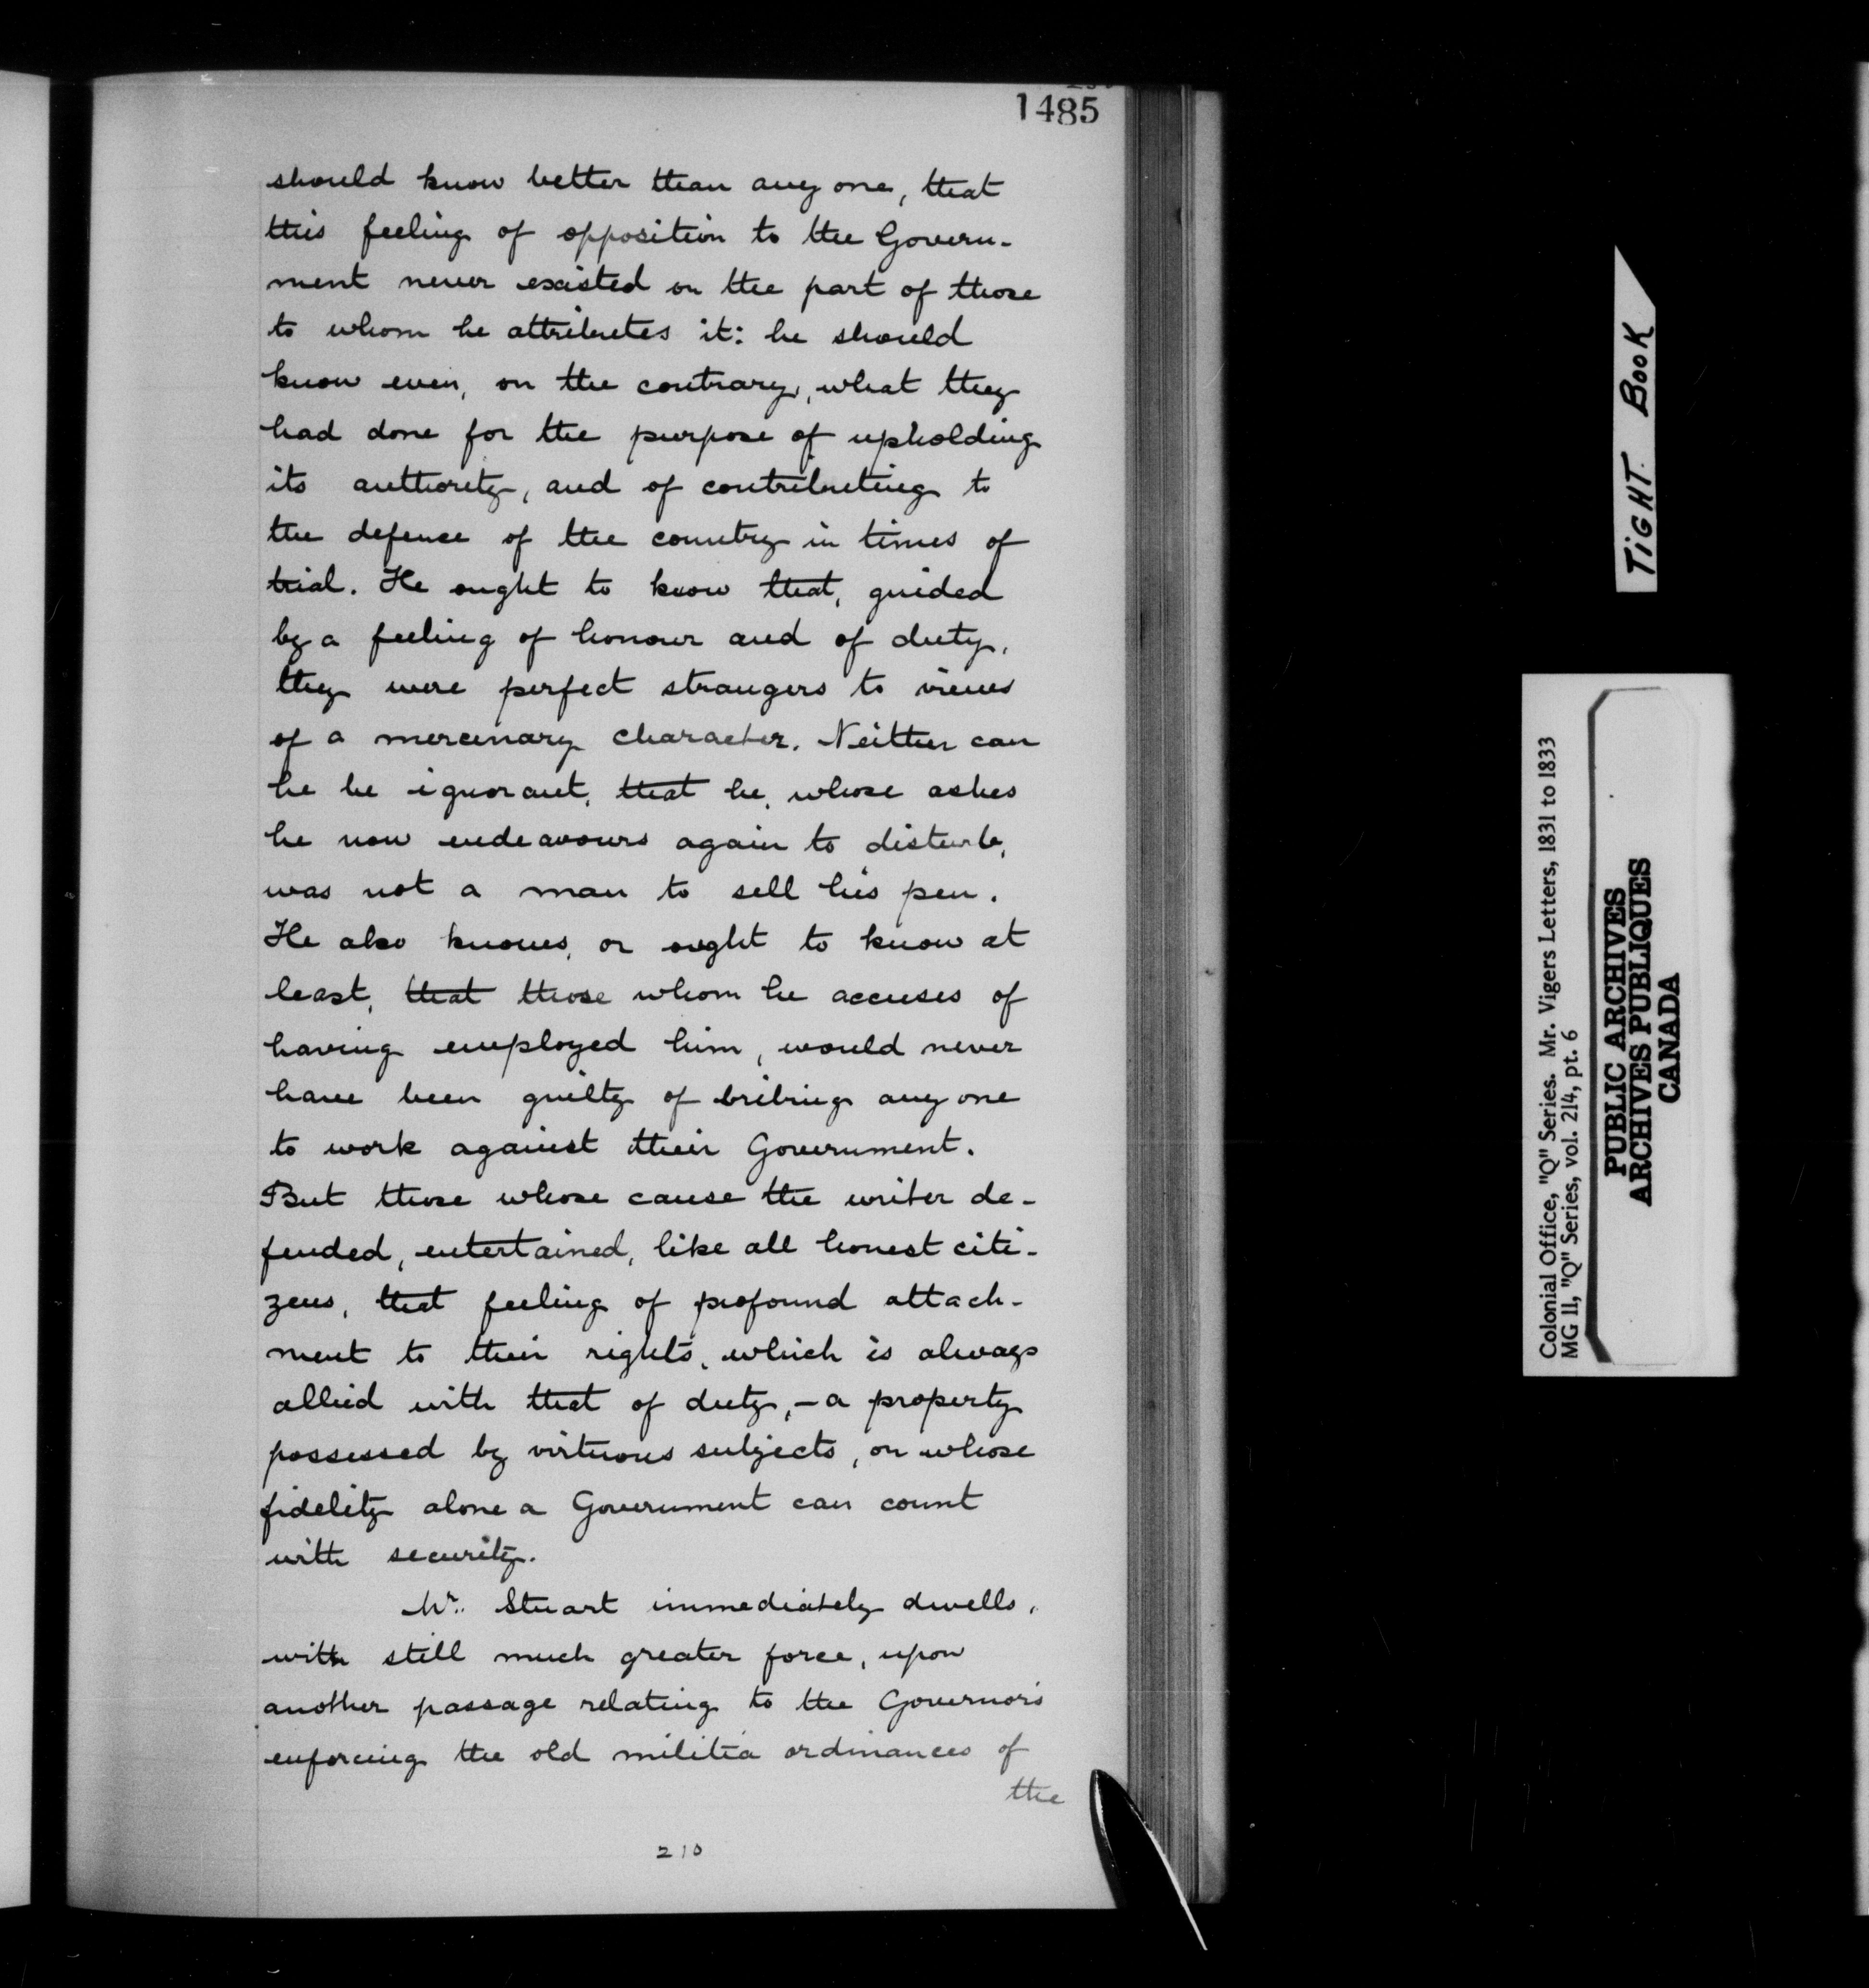 1485
should know better than any one, that
this feeling of opposition to the Govern-
ment never existed on the part of those
to whom he attributes it: he should
know even, on the contrary, what they
had done for the purpose of upholding
its authority, and of contributing to
the defence of the country in times of
trial. He ought to know that, guided
by a feeling of honour and of duty,
they were perfect strangers to views
of a mercenary character. Neither can
he be ignorant, that he, whose ashes
he now endeavours again to disturb,
was not a man to sell his pen.
He also knows, or ought to know at
least, that those whom he accuses of
having employed him, would never
have been guilty of bribing any one
to work against their Government.
But those whose cause the writer de-
fended, entertained, like all honest citi-
zens, that feeling of profound attach-
ment to their rights, which is always
allied with that of duty,—a property
possessed by virtuous subjects, on whose
fidelity alone a Government can count
with security.
Mr. Stuart immediately dwells,
with still much greater force, upon
another passage relating to the Governor's
enforcing the old militia ordinances of
the
210
TIGHT BOOK
Colonial Office, "Q" Series. Mr. Vigers Letters, 1831 to 1833
MG 11, "Q" Series, vol. 214, pt. 6
PUBLIC ARCHIVES
ARCHIVES PUBLIQUES
CANADA